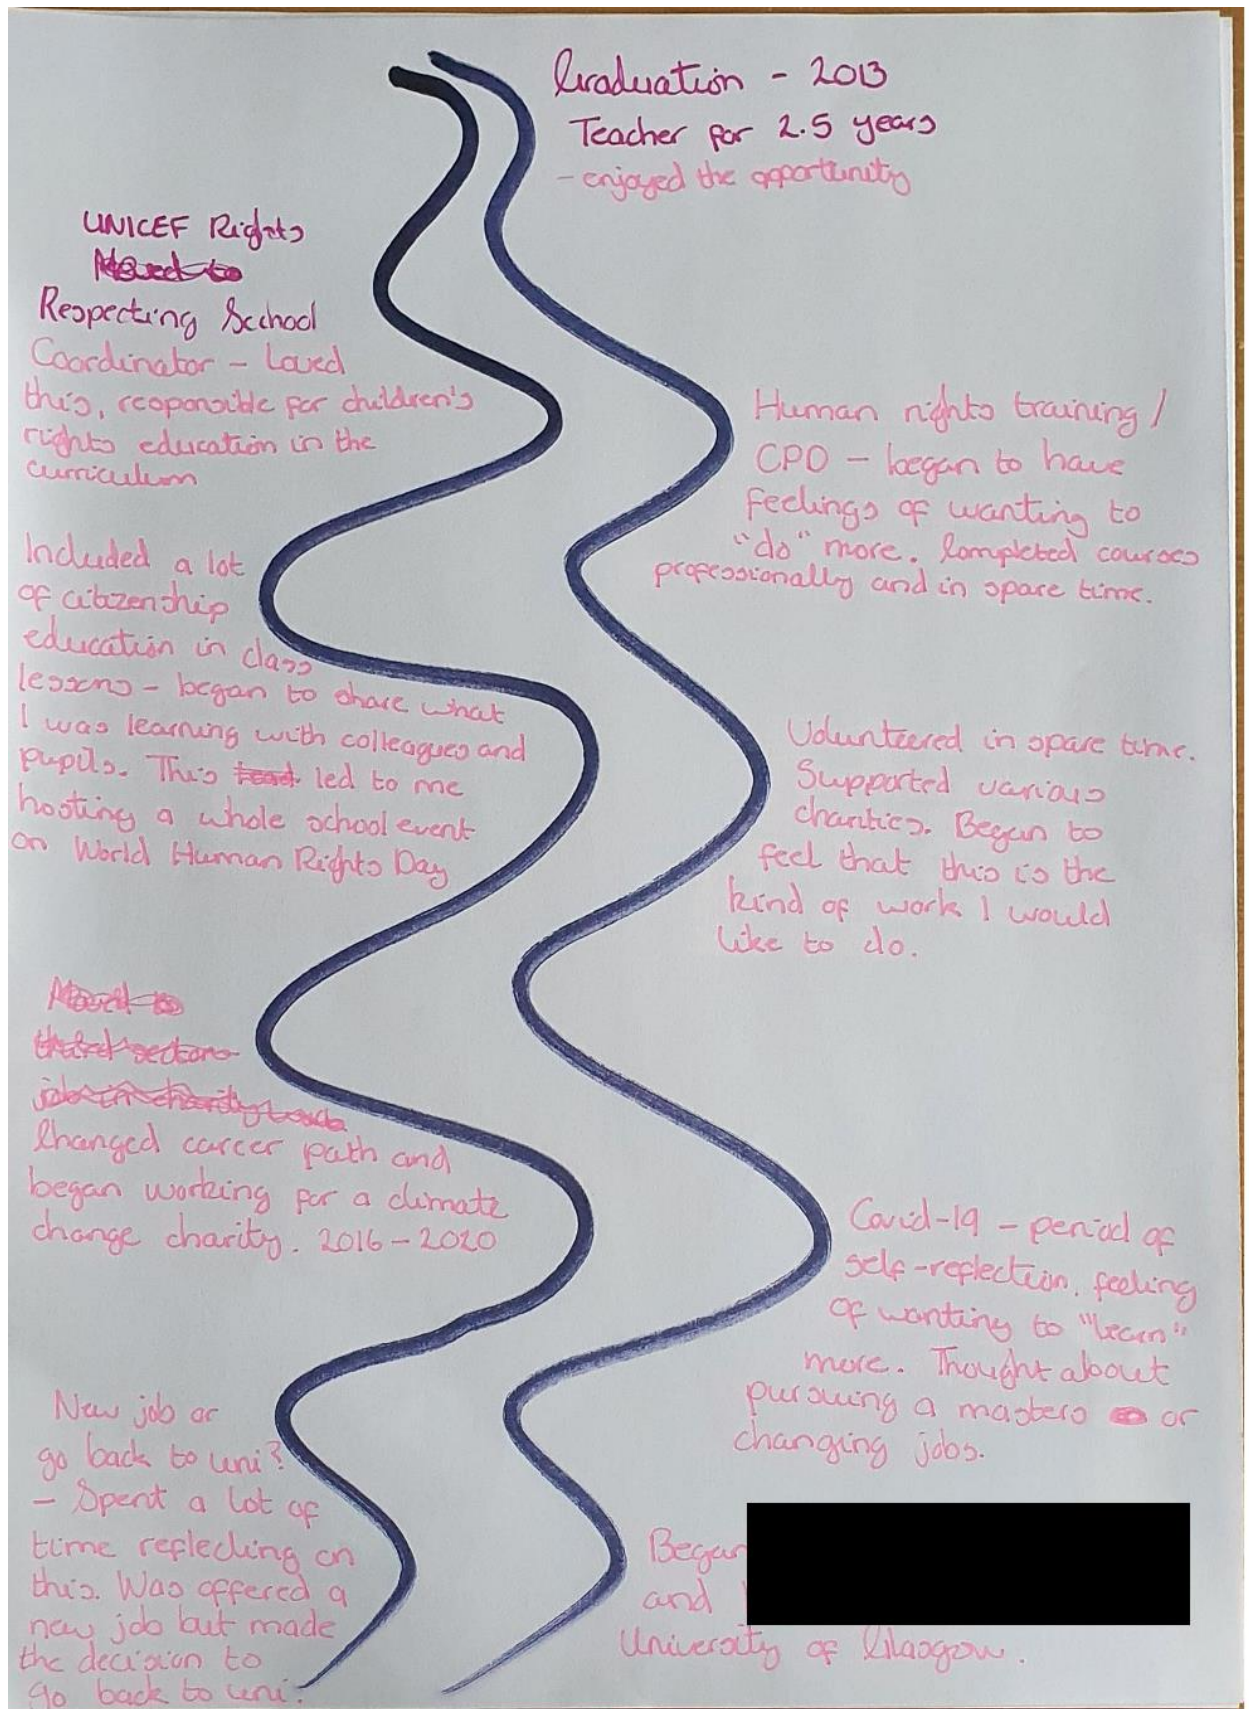 Graduation - 2013
Teacher for 2.5 years
- enjoyed the opportunity
UNICEF Rights
Moved to
Respecting School
Coordinator - Loved
this, responsible for children's
rights education in the
curriculum
Human rights training /
CPD - began to have
feelings of wanting to
"do" more. Completed courses
professionally and in spare time.
Included a lot
of citizenship
education in class
lessons - began to share what
I was learning with colleagues and
pupils. This led to me
hosting a whole school event
on World Human Rights Day
Volunteered in spare time.
Supported various
charities. Began to
feel that this is the
kind of work I would
like to do.
Moved to
third sector
job in charity
Changed career path and
began working for a climate
change charity. 2016 - 2020
Covid-19 - period of
self-reflection, feeling
of wanting to "learn"
more. Thought about
pursuing a masters or
changing jobs.
New job or
go back to uni?
- Spent a lot of
time reflecting on
this. Was offered a
new job but made
the decision to
go back to uni.
Began
and
University of Glasgow.